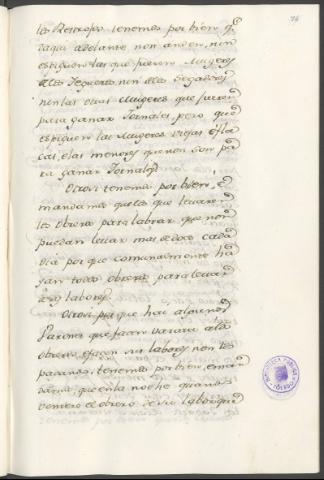 76
los Restrojos tenemos por bien, q̃
daqui adelante non anden, nin
espiguen las que fueren Mugeres
de los Yegueros, nin de los Segadores
nin las otras Mugeres que fueren
para ganar Jornales, pero que
espiguen las Mugeres viejas é fla
cas, é las menores que non son pa
ra ganar Jornales
Otrosi tenemos por bien, é
mandamos que los que
los obreros para labrar que non
puedan levar mas de doce cada
dia por que comunalmente ha
yan todos obreros para levar
á sus labores
Otrosi por que hai algunos
que facen a los
obreros, é facen sus labores non los
pagando, tenemos por bien, é man
damos, que en la noche quando
veniere el obrero de su labor que
BIBLIOTECA